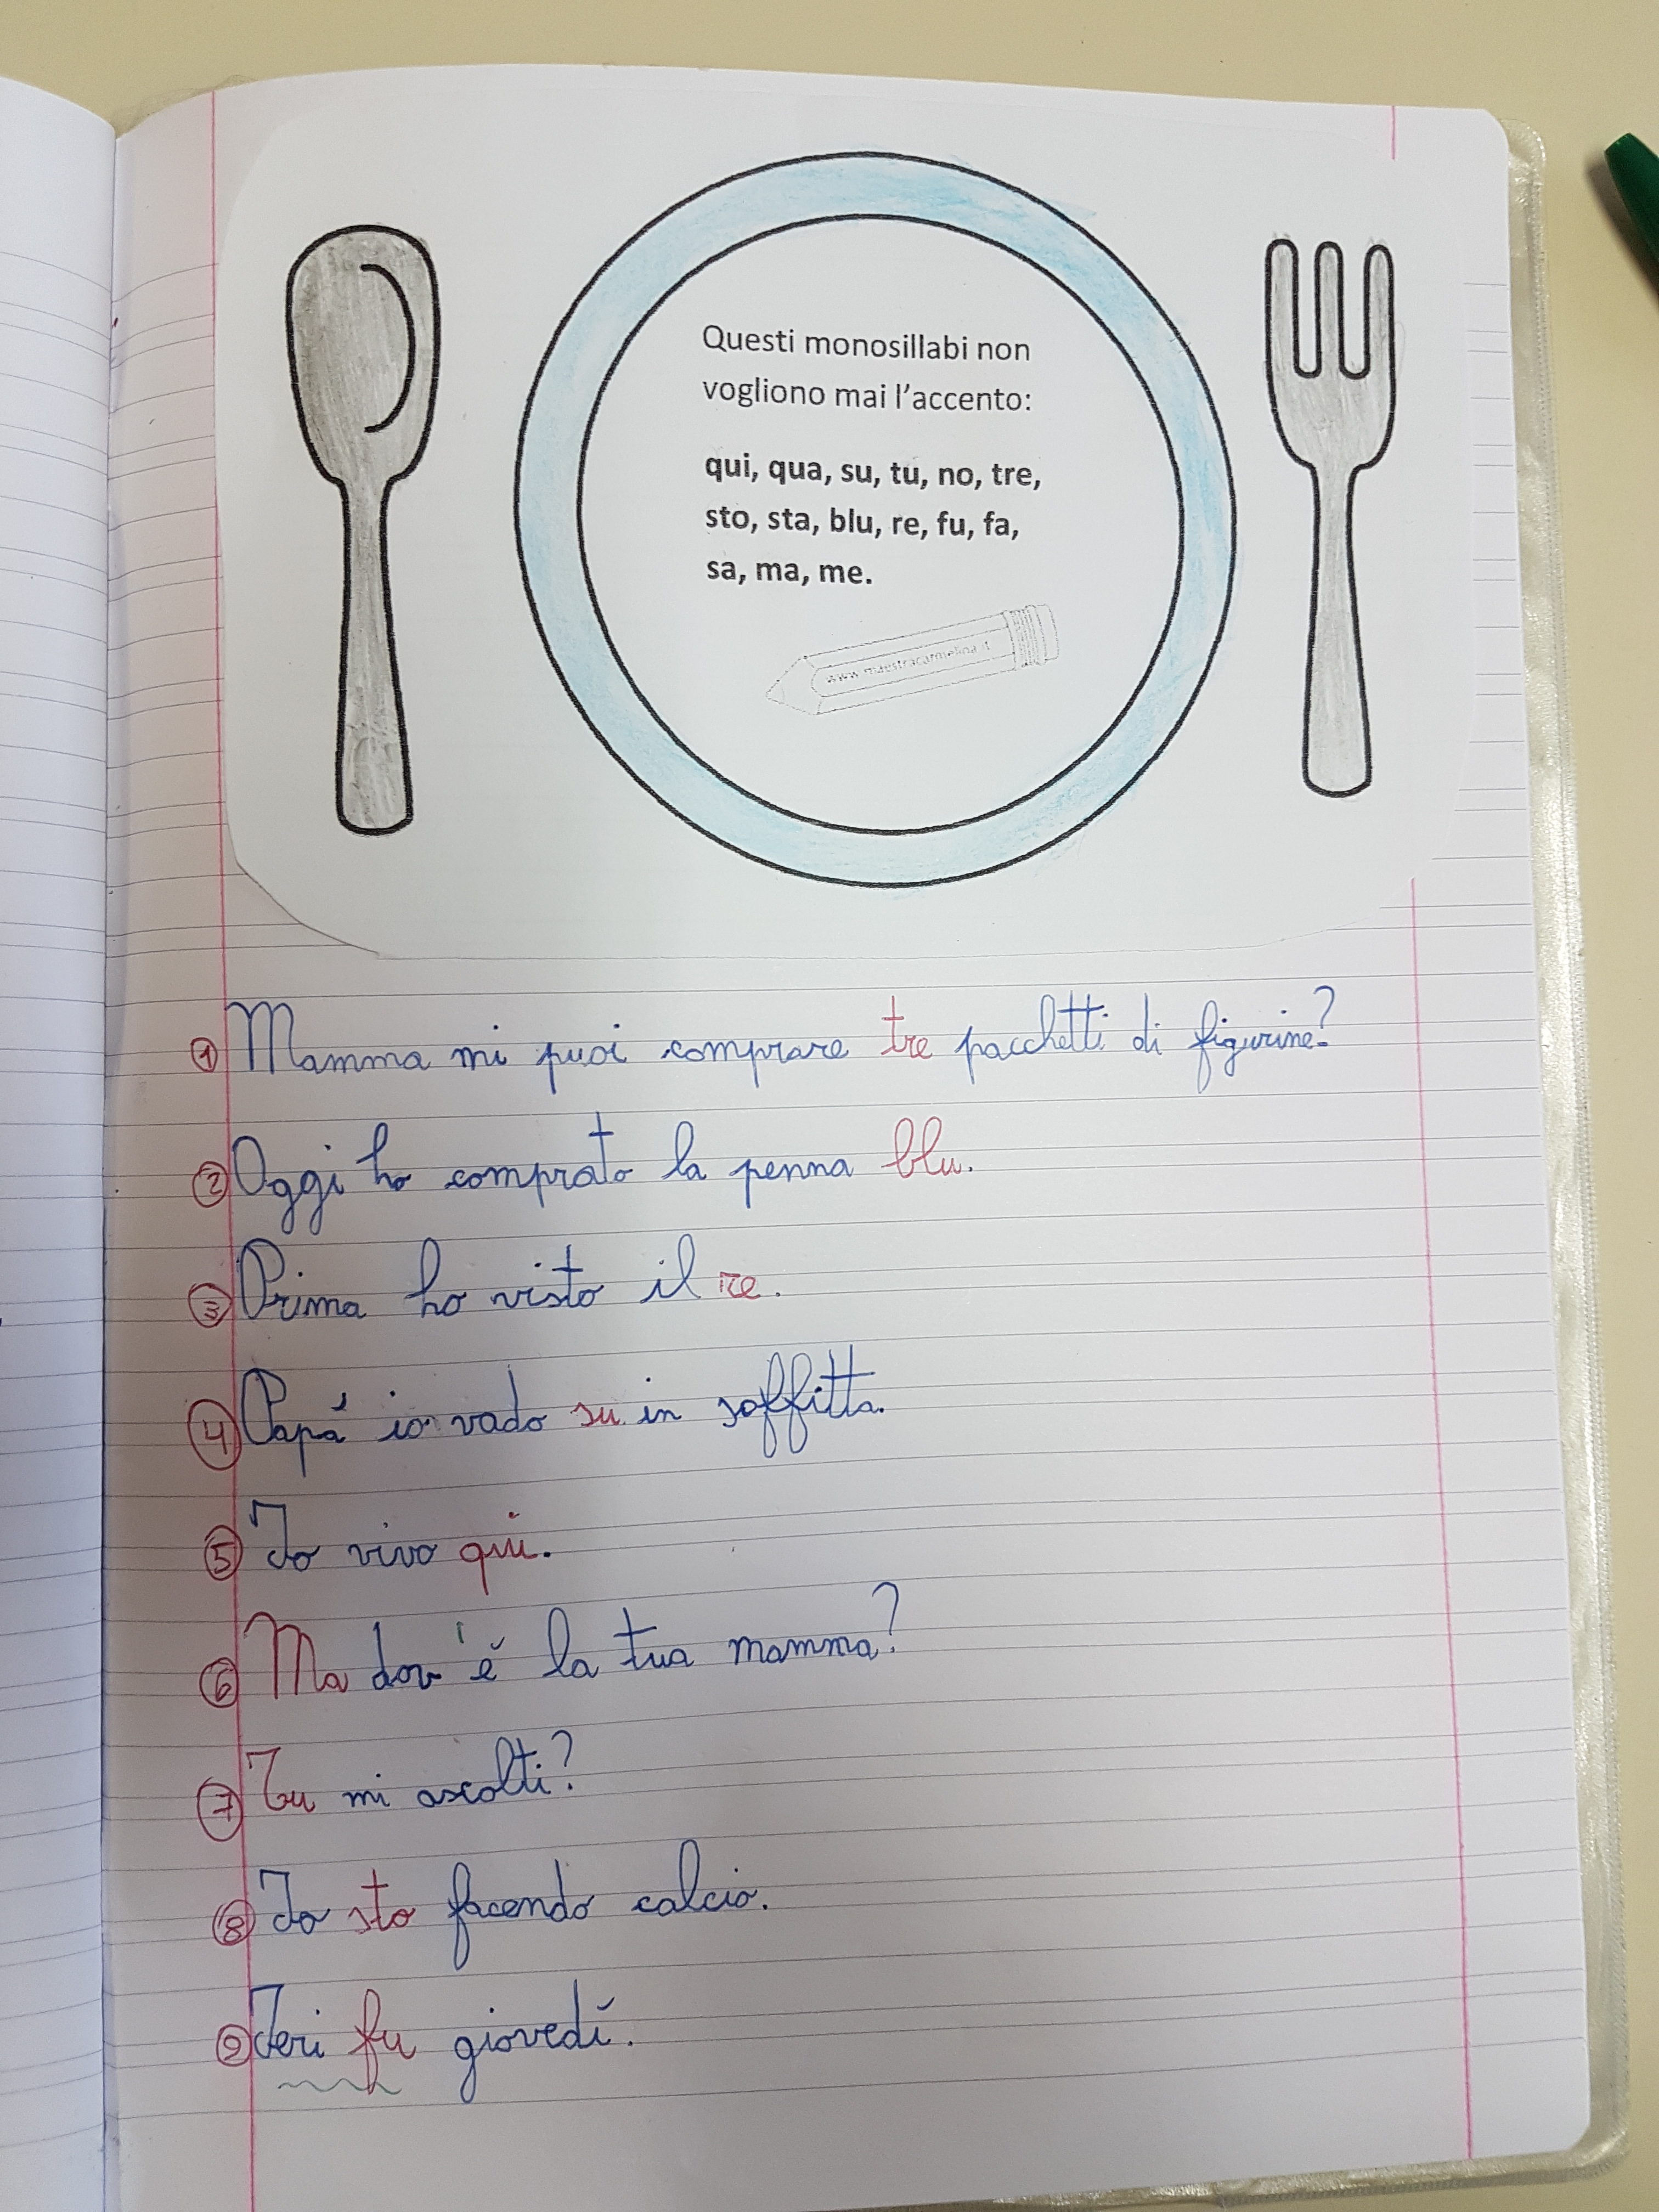 Questi monosillabi non
vogliono mai l'accento:
qui, qua, su, tu, no, tre,
sto, sta, blu, re, fu, fa,
sa, ma, me.
www.maestracarmelina.it
1 Mamma mi puoi comprare tre pacchetti di figurine?
2 Oggi ho comprato la penna blu.
3 Prima ho visto il re.
4 Papà io vado su in soffitta.
5 Io vivo qui.
6 Ma dov'è la tua mamma?
7 Tu mi ascolti?
8 Io sto facendo calcio.
9 Ieri fu giovedì.